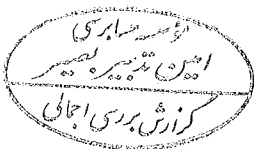 مؤسسه حسابرسی
امین تدبیر بصیر
گزارش بررسی اجمالی